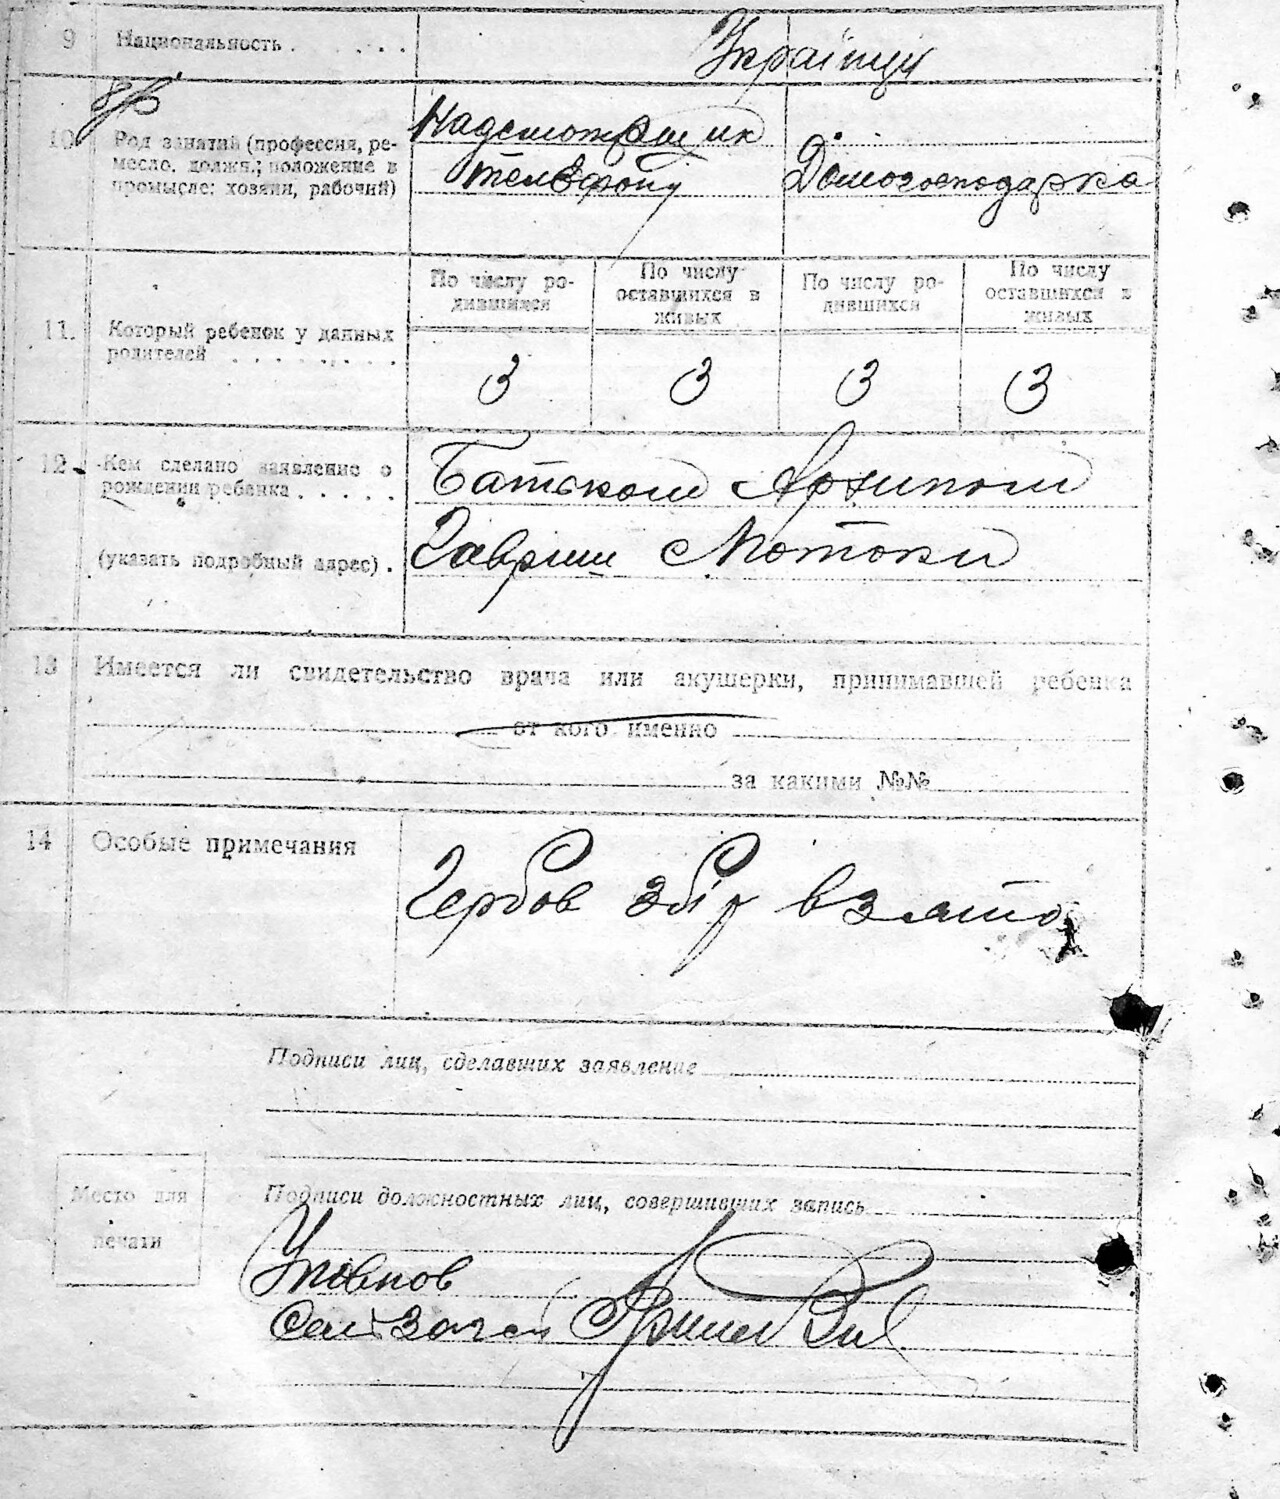 9 Национальность . . . . . Українці
10 Род занятий (профессия, ре-
месло, должн.; положение в
промысле: хозяин, рабочий)
Надсмотрщик
телефону
Домогосподарка
11. Который ребенок у данных
родителей . . . . . . . .
По числу ро-
дившихся
По числу
оставшихся в
живых
По числу ро-
дившихся
По числу
оставшихся в
живых
3 3 3 3
12 Кем сделано заявление о
рождении ребенка . . . . .
(указать подробный адрес) .
Батьком Архипом
Гавриш с Мотоки
13 Имеется ли свидетельство врача или акушерки, принимавшей ребенка
от кого именно
за какими №№
14 Особые примечания
Гербов збір взято
Подписи лиц, сделавших заявление
Место для
печати
Подписи должностных лиц, совершивших запись
Уповнов